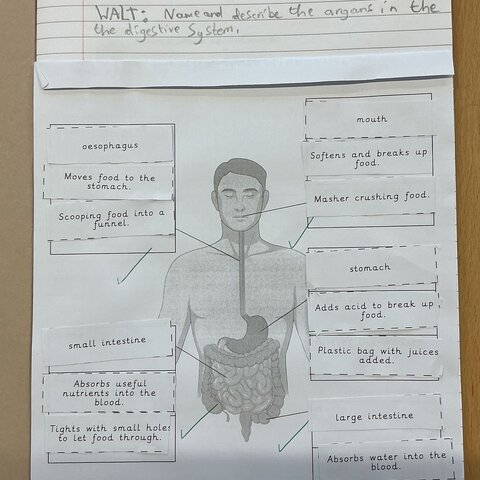 WALT: Name and describe the organs in the
the digestive system.
oesophagus
Moves food to the
stomach.
Scooping food into a
funnel.
mouth
Softens and breaks up
food.
Masher crushing food.
stomach
Adds acid to break up
food.
Plastic bag with juices
added.
small intestine
Absorbs useful
nutrients into the
blood.
Tights with small holes
to let food through.
large intestine
Absorbs water into the
blood.